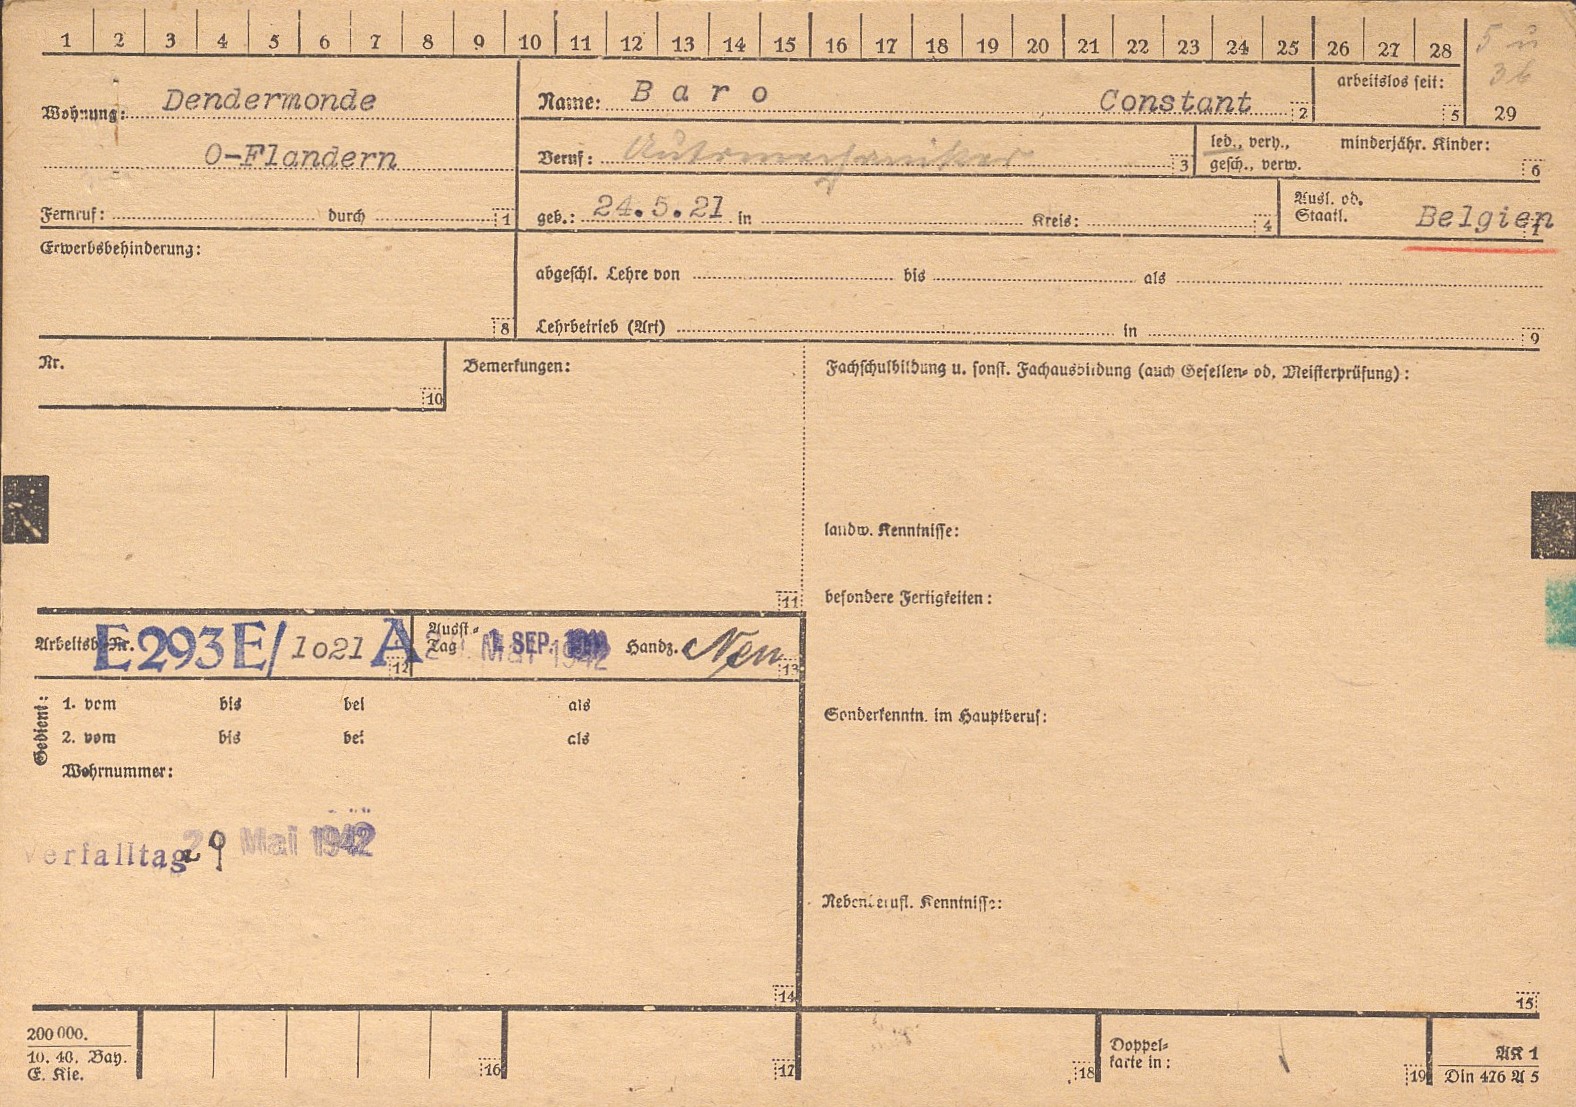 1 2 3 4 5 6 7 8 9 10 11 12 13 14 15 16 17 18 19 20 21 22 23 24 25 26 27 28
5 u
36
29
Wohnung: Dendermonde
O-Flandern
Fernruf: durch 1
Name: Baro Constant 2
arbeitslos seit: 5
Beruf: Automechaniker 3
led., verh., gesch., verw.
minderjähr. Kinder: 6
geb.: 24.5.21 in Kreis: 4
Ausl. od. Staatl. Belgien 7
Erwerbsbehinderung: 8
abgeschl. Lehre von bis als
Lehrbetrieb (Art) in 9
Nr. 10
Bemerkungen: 11
Fachschulbildung u. sonst. Fachausbildung (auch Gesellen- od. Meisterprüfung):
landw. Kenntnisse:
besondere Fertigkeiten:
Arbeitsb. Nr. E293E/1021 A 12
Ausst.-Tag 1. SEP. Mai 1942 Handz. 13
Gedient:
1. vom bis bei als
2. vom bis bei als
Wehrnummer:
Sonderkenntn. im Hauptberuf:
Verfalltag 29 Mai 1942
Nebenberufl. Kenntnisse:
14
15
200 000.
10. 40. Bay.
E. Kie.
16
17
18
Doppel-
karte in:
19
AK 1
Din 476 A 5